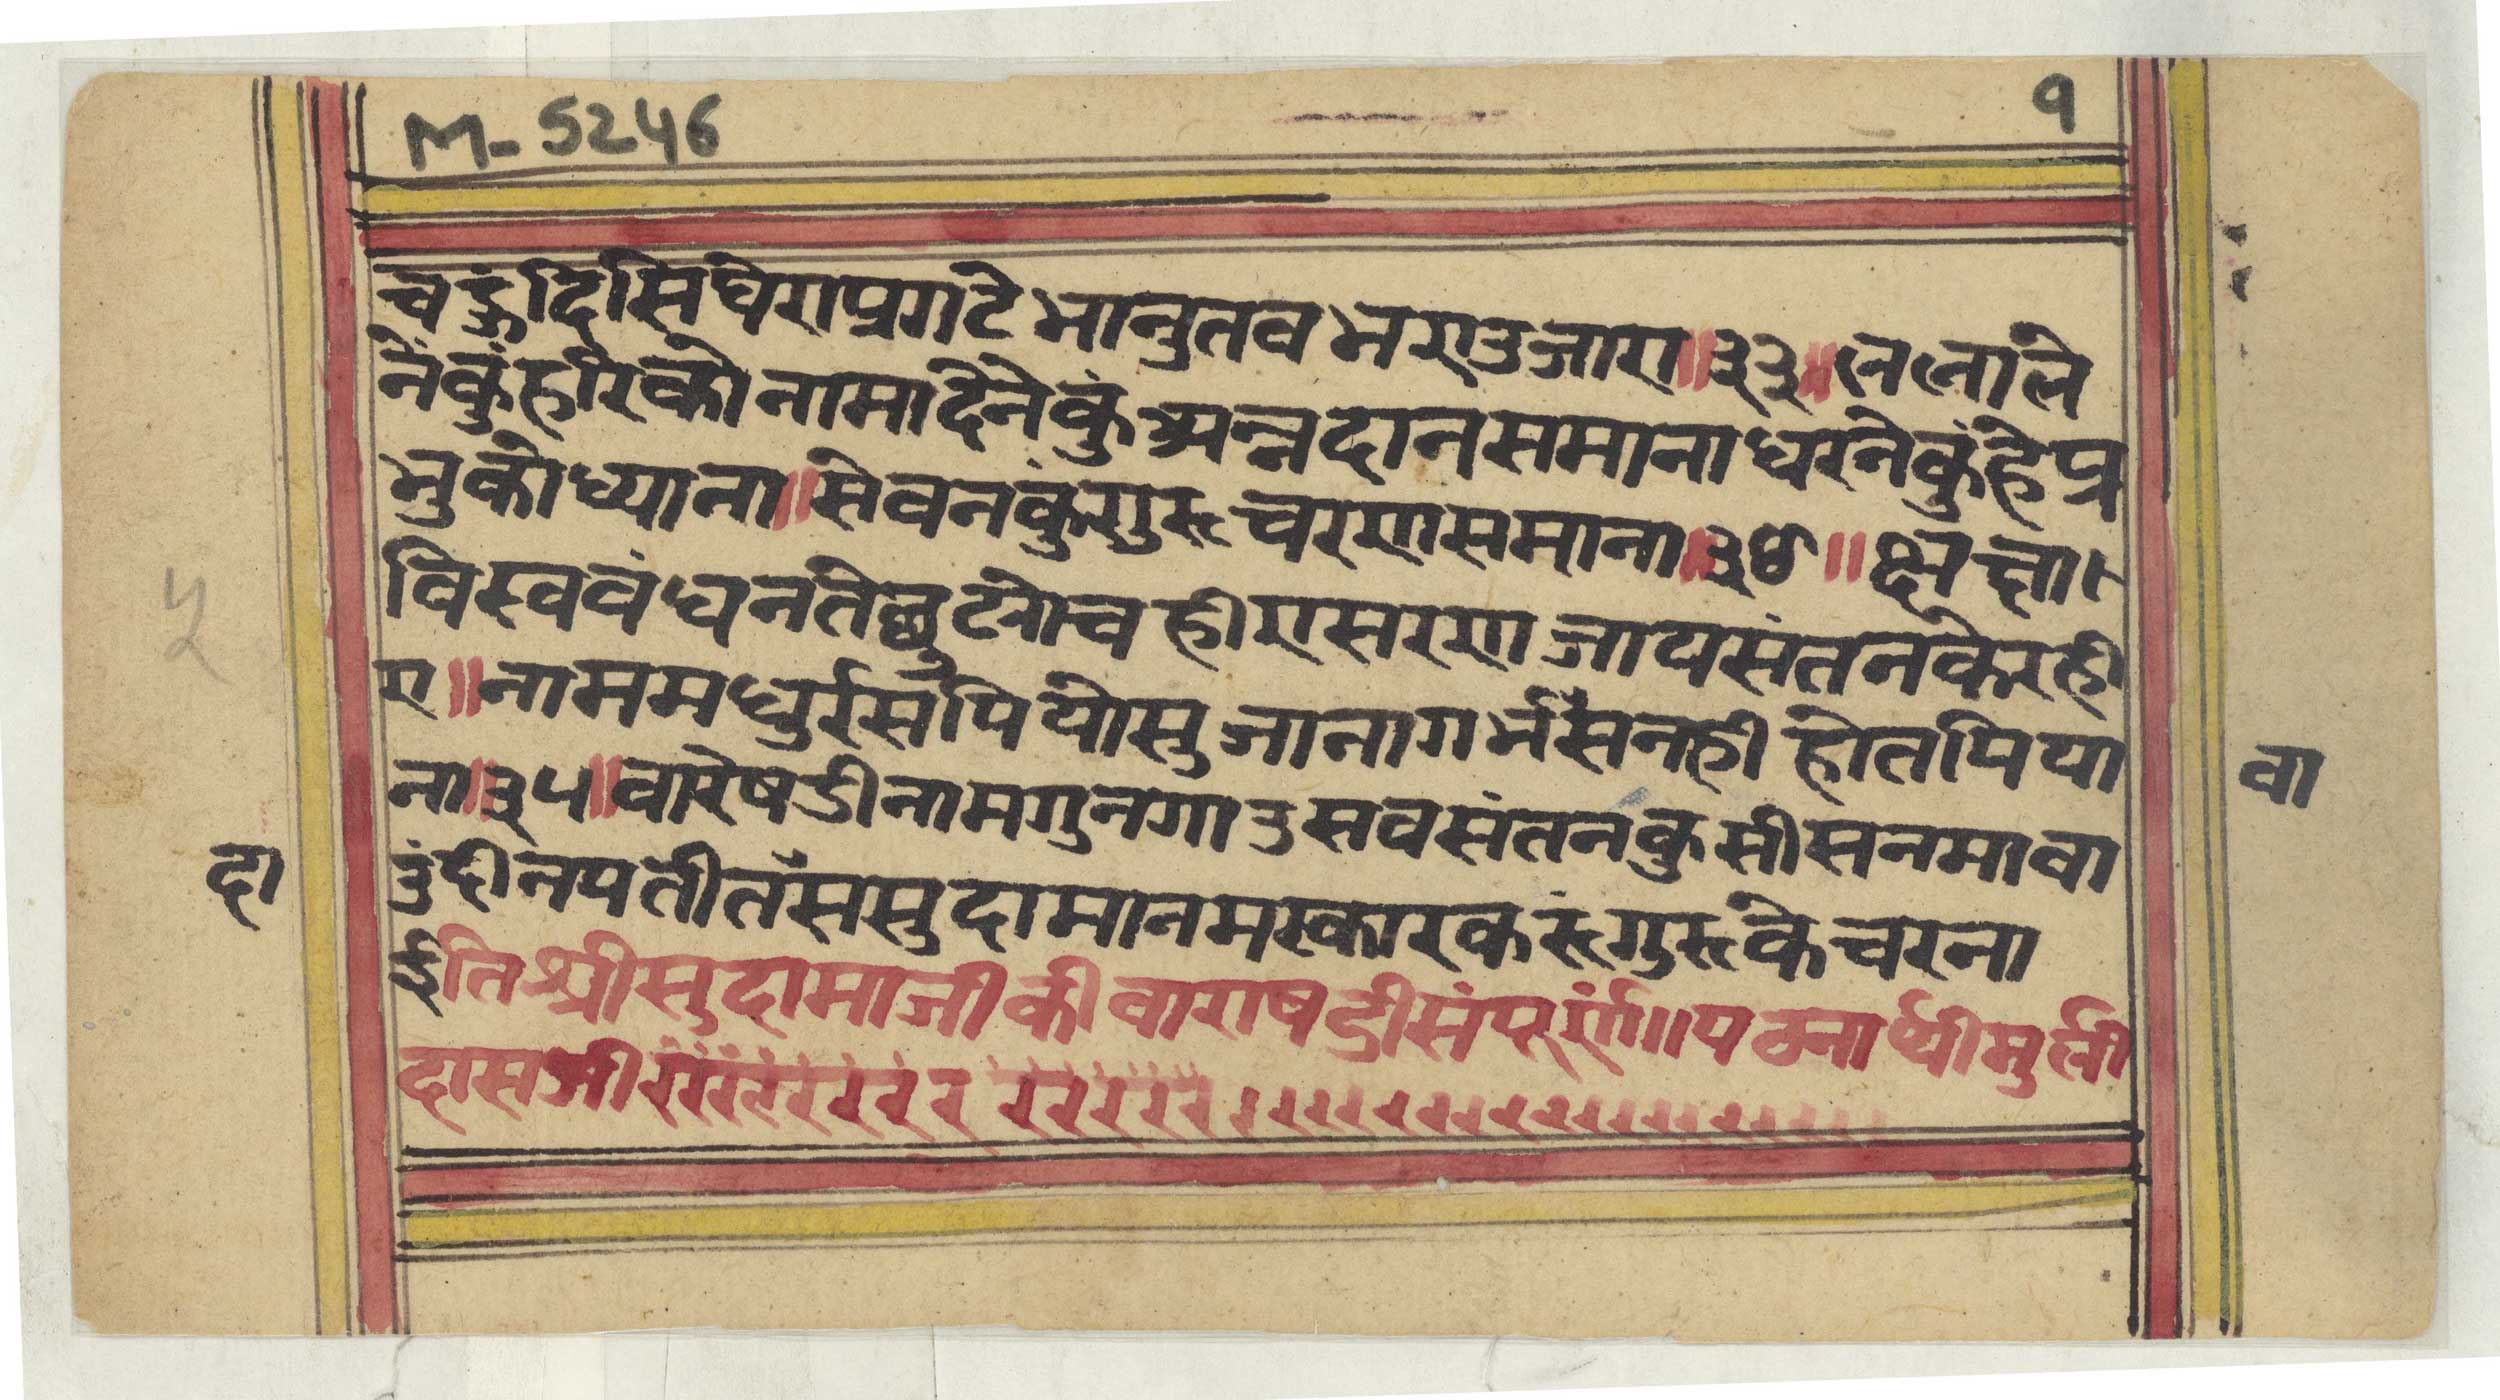 M-5246
१
चहुंदिसिघेराप्रगटेभानुतवभएउजारा॥३३॥ललाले
नेंकुंहरिकोनामादेनेकुंअन्नदानसमानाधरनेकुंहेप्र
भुकोध्याना॥सेवनकुंगुरूचरणसमाना॥३४॥क्षक्षा
विस्ववंधनतेछुटोचहीएसरणजायसंतनकेरही
ए॥नाममधुर्रसपियोसुजानागर्भसनहीहोतपिया
ना॥३५॥वारेषडीनामगुनगाउसवसंतनकुसीसनमावा
उंदीनपतीतससुदामानमस्कारकरूंगुरूकेचरना
ईतिश्रीसुदामाजीकीवाराषडीसंपूर्णं॥पठनार्थीमुर्ली
दासजी
दा
वा
५